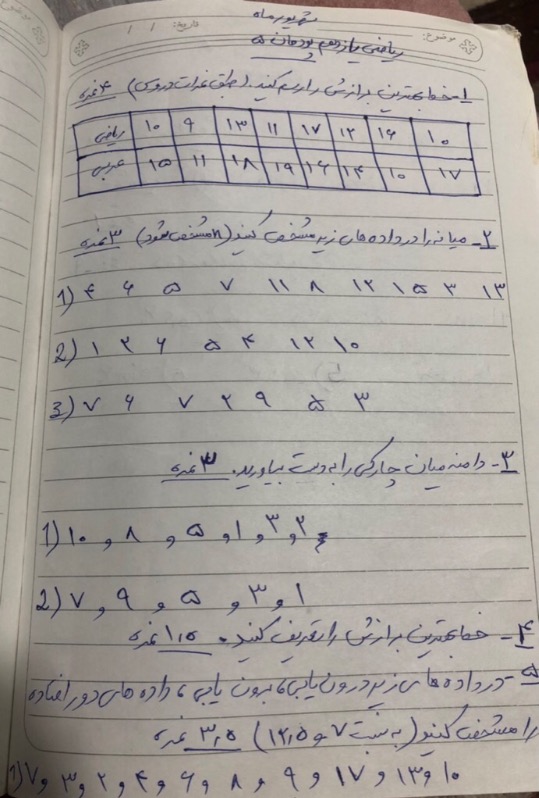 موضوع: تاریخ: / /
شهریور ماه
ریاضی یازدهم پودمان ۵
۱- خط بهترین برازش را رسم کنید. (طبق نمرات دروس) ۴ نمره
ریاضی ۱۰ ۹ ۱۳ ۱۱ ۱۷ ۱۲ ۱۶ ۱۰
عربی ۱۵ ۱۱ ۱۸ ۱۹ ۱۶ ۱۴ ۱۰ ۱۷
۲- میانه را در داده های زیر مشخص کنید (n مشخص شود) ۳ نمره
1) ۴ ۶ ۵ ۷ ۱۱ ۸ ۱۲ ۱۵ ۳ ۱۳
2) ۱ ۲ ۶ ۵ ۴ ۱۲ ۱۰
3) ۷ ۶ ۷ ۲ ۹ ۵ ۳
۳- دامنه میان چارکی را به دست بیاورید. ۳ نمره
1) ۱۰ , ۸ , ۵ , ۱ , ۳ , ۲
2) ۷ , ۹ , ۵ , ۳ , ۱
۴- خط بهترین برازش را تعریف کنید. ۱,۵ نمره
۵- در داده های زیر درون یابی، برون یابی، داده های دور افتاده
را مشخص کنید (به نسبت ۷ و ۱۲,۵) ۳,۵ نمره
1) ۷ , ۳ , ۲ , ۴ , ۶ , ۸ , ۹ , ۱۷ , ۱۳ , ۱۰